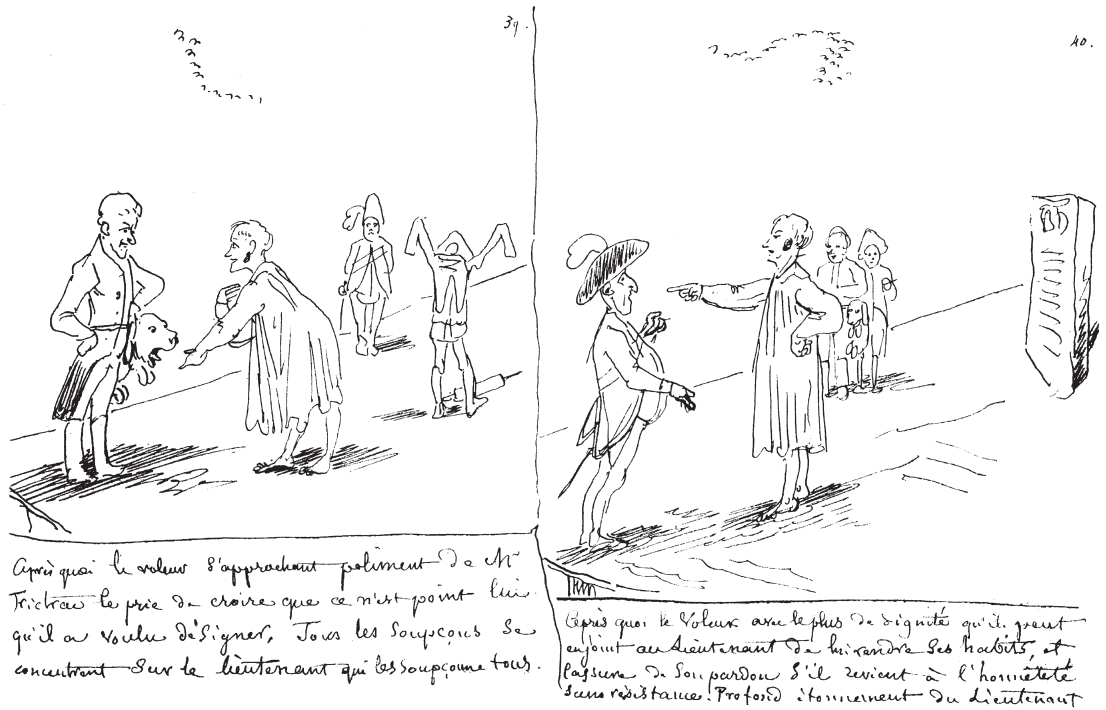 39.
Après quoi le voleur s'approchant poliment de Mr
Trictrac le prie de croire que ce n'est point lui
qu'il a voulu désigner. Tous les soupçons se
concentrent sur le lieutenant qui les soupçonne tous.
40.
Après quoi le Voleur avec le plus de dignité qu'il peut
enjoint au Lieutenant de lui rendre ses habits, et
l'assure de son pardon s'il revient à l'honnêteté
sans résistance. Profond étonnement du Lieutenant